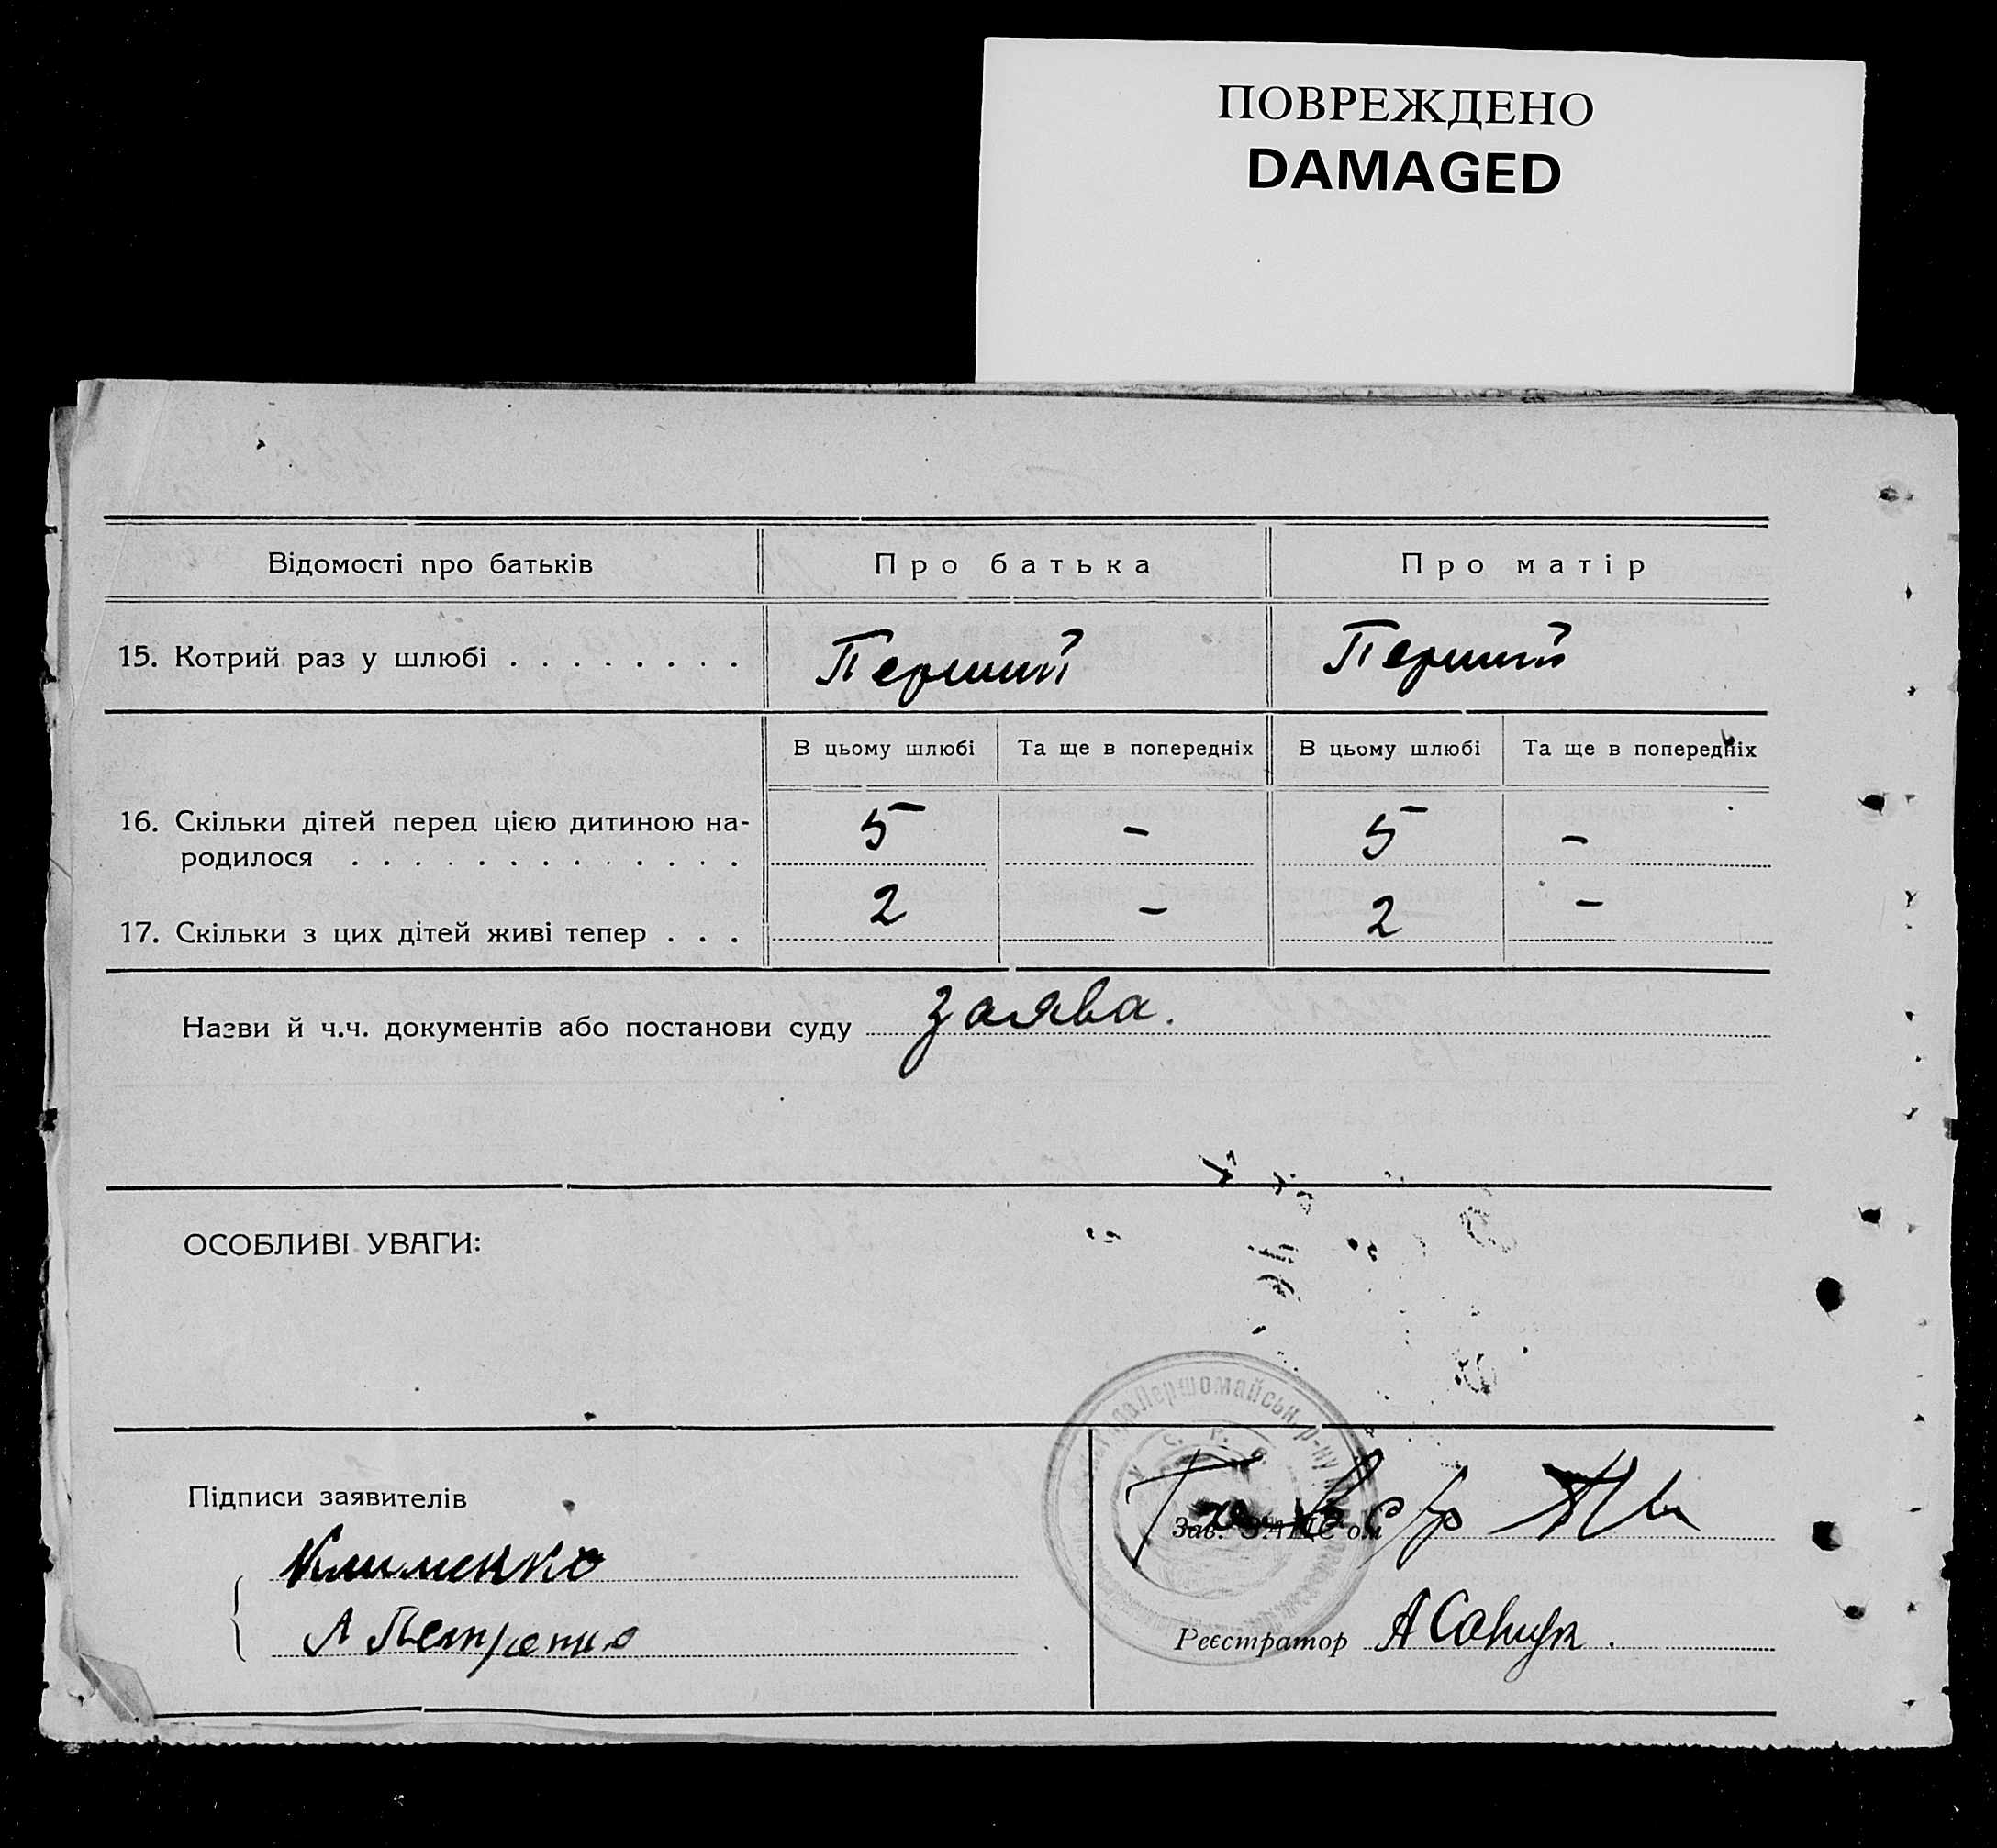 ПОВРЕЖДЕНО
DAMAGED
Відомості про батьків
Про батька
Про матір
15. Котрий раз у шлюбі . . . . . . . .
Перший
Перший
В цьому шлюбі
Та ще в попередніх
В цьому шлюбі
Та ще в попередніх
16. Скільки дітей перед цією дитиною на-
родилося . . . . . . . . . . . . .
5
-
5
-
17. Скільки з цих дітей живі тепер . . .
2
-
2
-
Назви й ч.ч. документів або постанови суду заява.
ОСОБЛИВІ УВАГИ:
Першомайськ. р-ну
У. С. Р. Р.
Підписи заявителів
Клименко
А Петренко
Зав. ЗАГС'ом
Реєстратор А